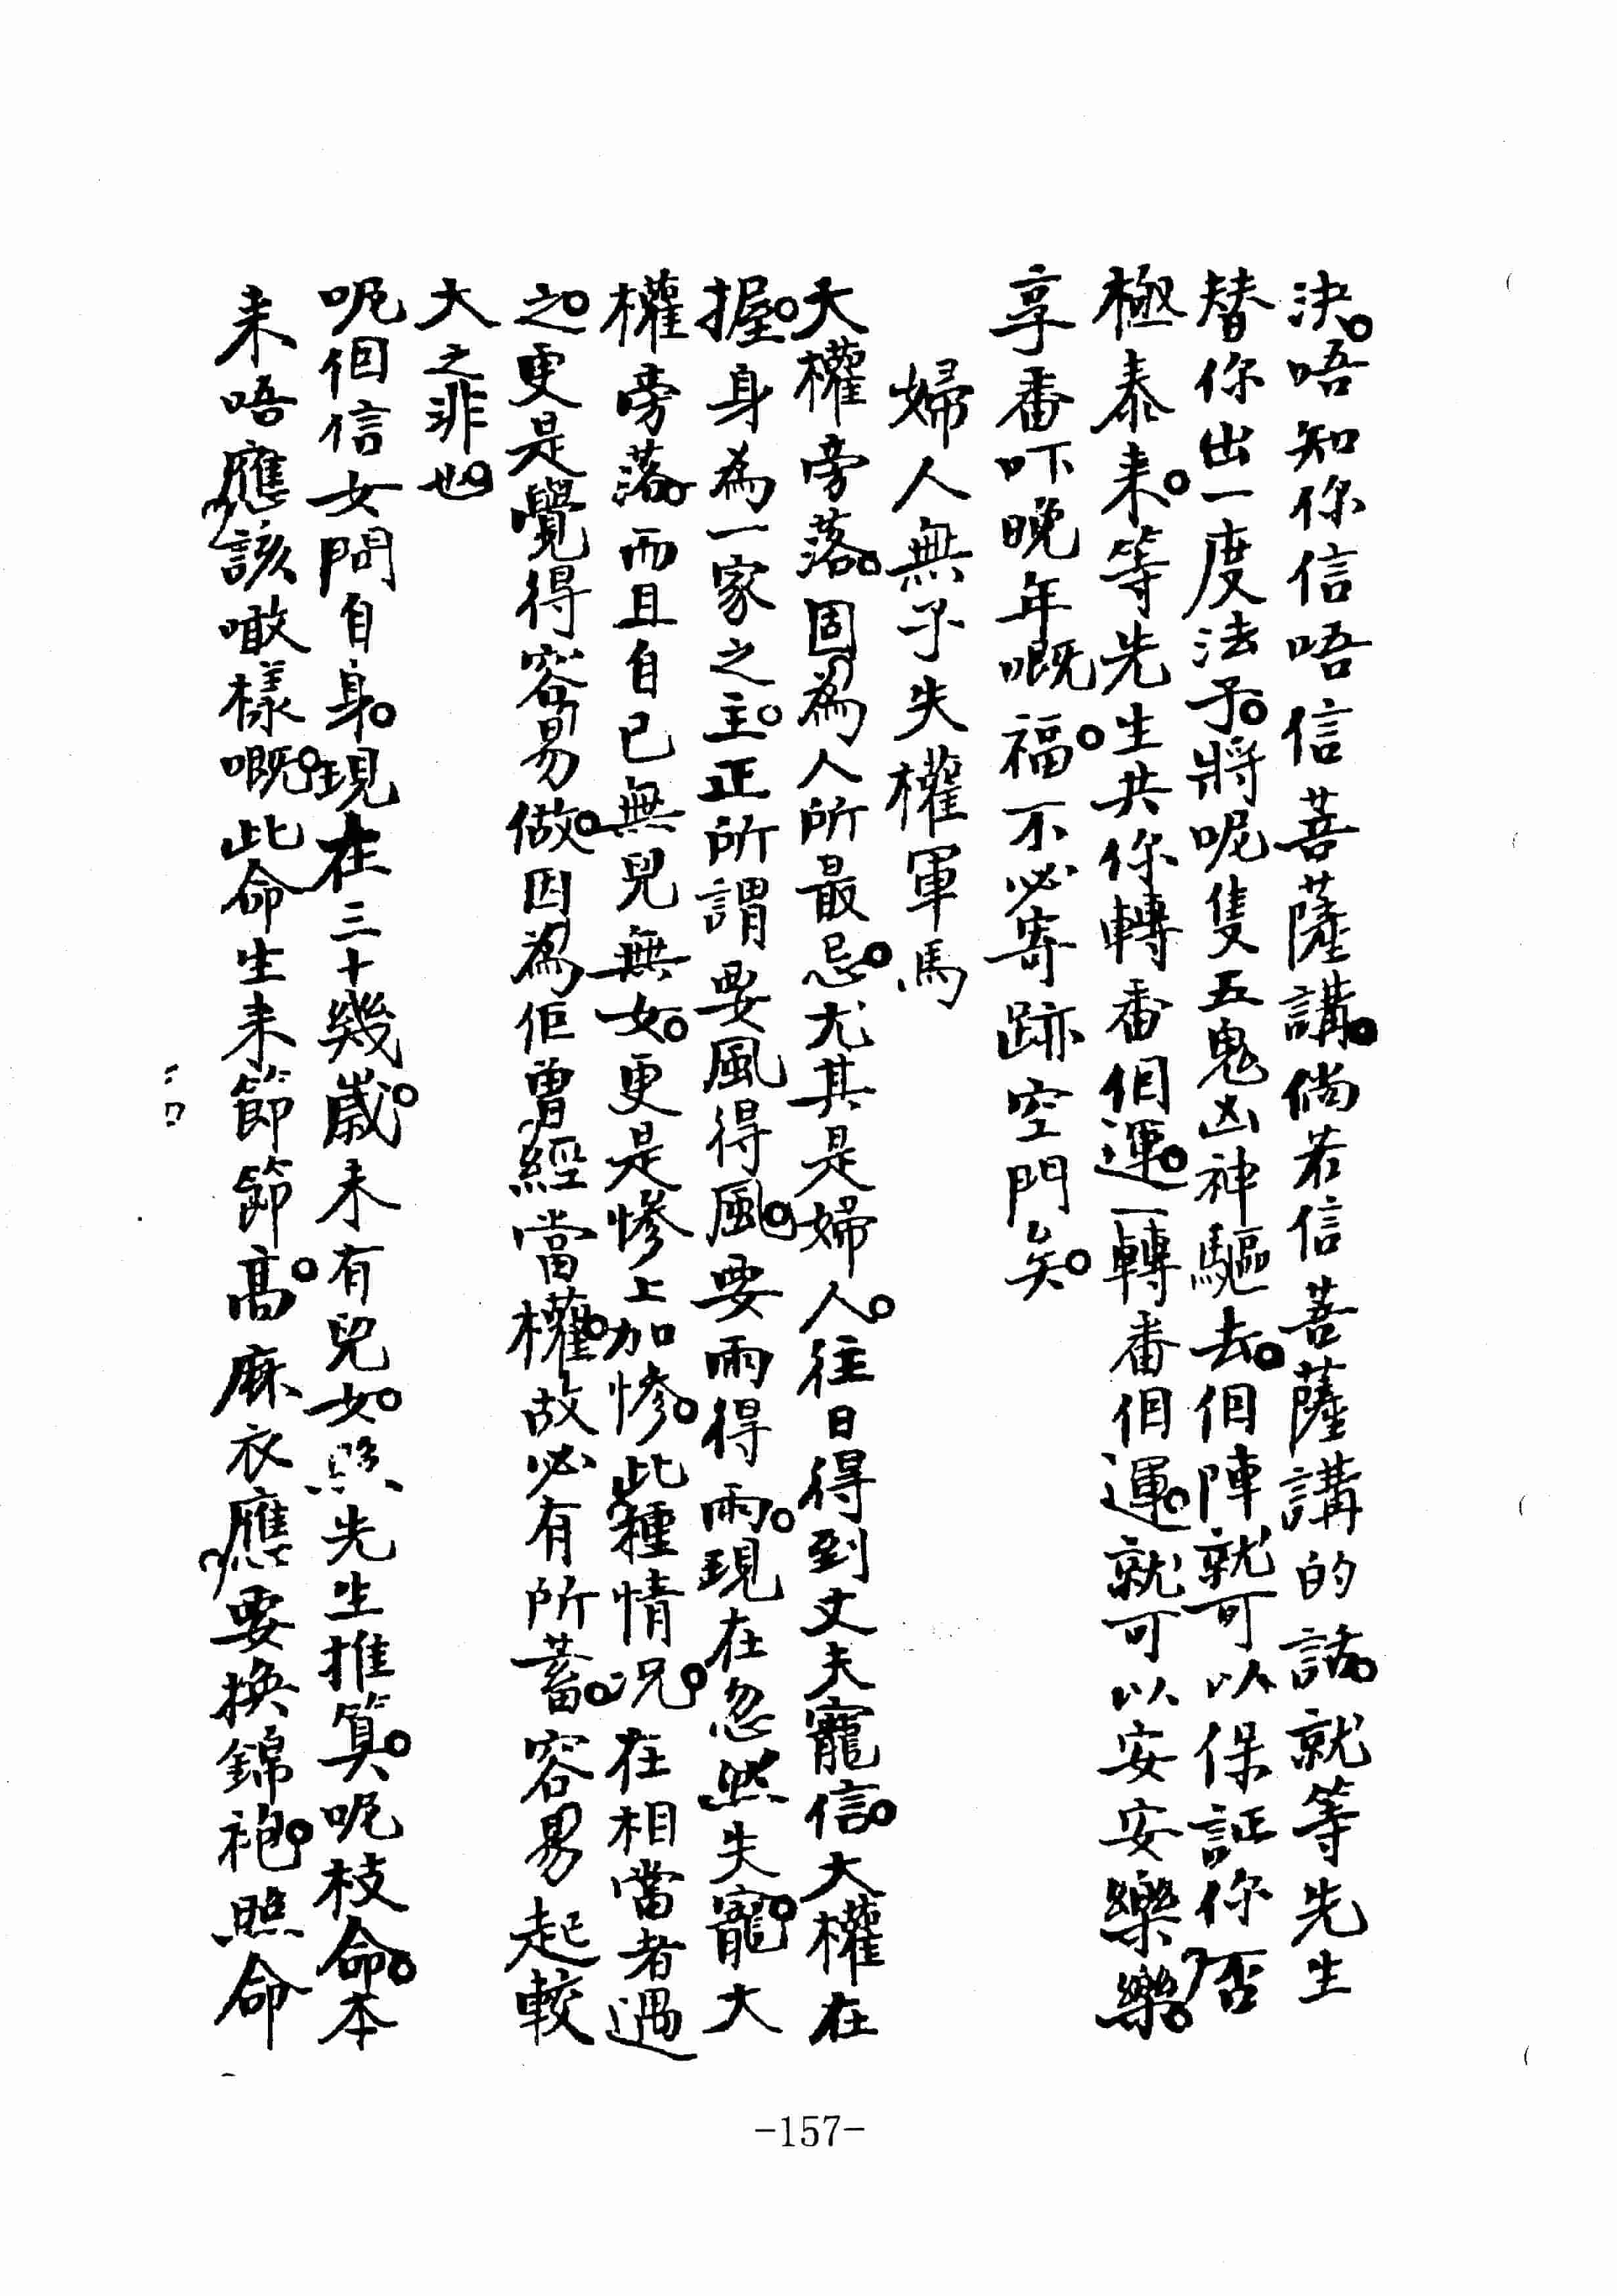 決。唔知你信唔信菩薩講。倘若信菩薩講的話。就等先生
替你出一度法子。將呢隻五鬼凶神驅去。佢陣就可以保証你否
極泰来。等先生共你轉番佢運。一轉番佢運。就可以安安樂樂。
享番吓晚年嘅福。不必寄跡空門矣。
婦人無子失權軍馬
大權旁落。固為人所最忌。尤其是婦人。往日得到丈夫寵信。大權在
握。身為一家之主。正所謂要風得風。要雨得雨。現在忽然失寵。大
權旁落。而且自已無兒無女。更是慘上加慘。此種情況。在相當者遇
之。更是覺得容易做。因為佢曾經當權。故必有所蓄。容易起較
大之非也。
呢佪信女問自身。現在三十幾歲。未有兒女。照先生推算。呢枝命。本
来唔應該噉樣嘅。此命生来節節高。麻衣應要換錦袍。照命
-157-